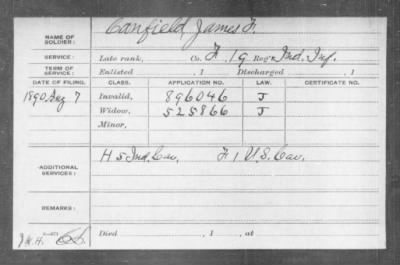 NAME OF SOLDIER: Canfield, James F.
SERVICE: Late rank, Co. F, 19 Reg't Ind. Inf.
TERM OF SERVICE: Enlisted , 1 Discharged , 1
DATE OF FILING. CLASS. APPLICATION NO. LAW. CERTIFICATE NO.
1890 Aug 7 Invalid, 896046 J
Widow, 525866 J
Minor,
ADDITIONAL SERVICES: H 5 Ind. Cav. F 1 U.S. Cav.
REMARKS:
Died , 1 , at